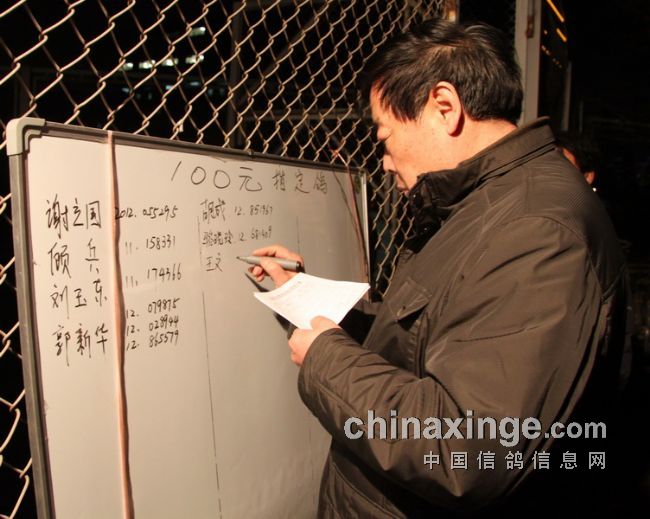 100元指定鸽
谢立国 2012.055295
顾兵 11.158331
刘玉东 11.174366
12.079875
郭新华 12.028944
12.865579
胡斌 12.851967
12.681409
王文
chinaxinge.com
中国信鸽信息网